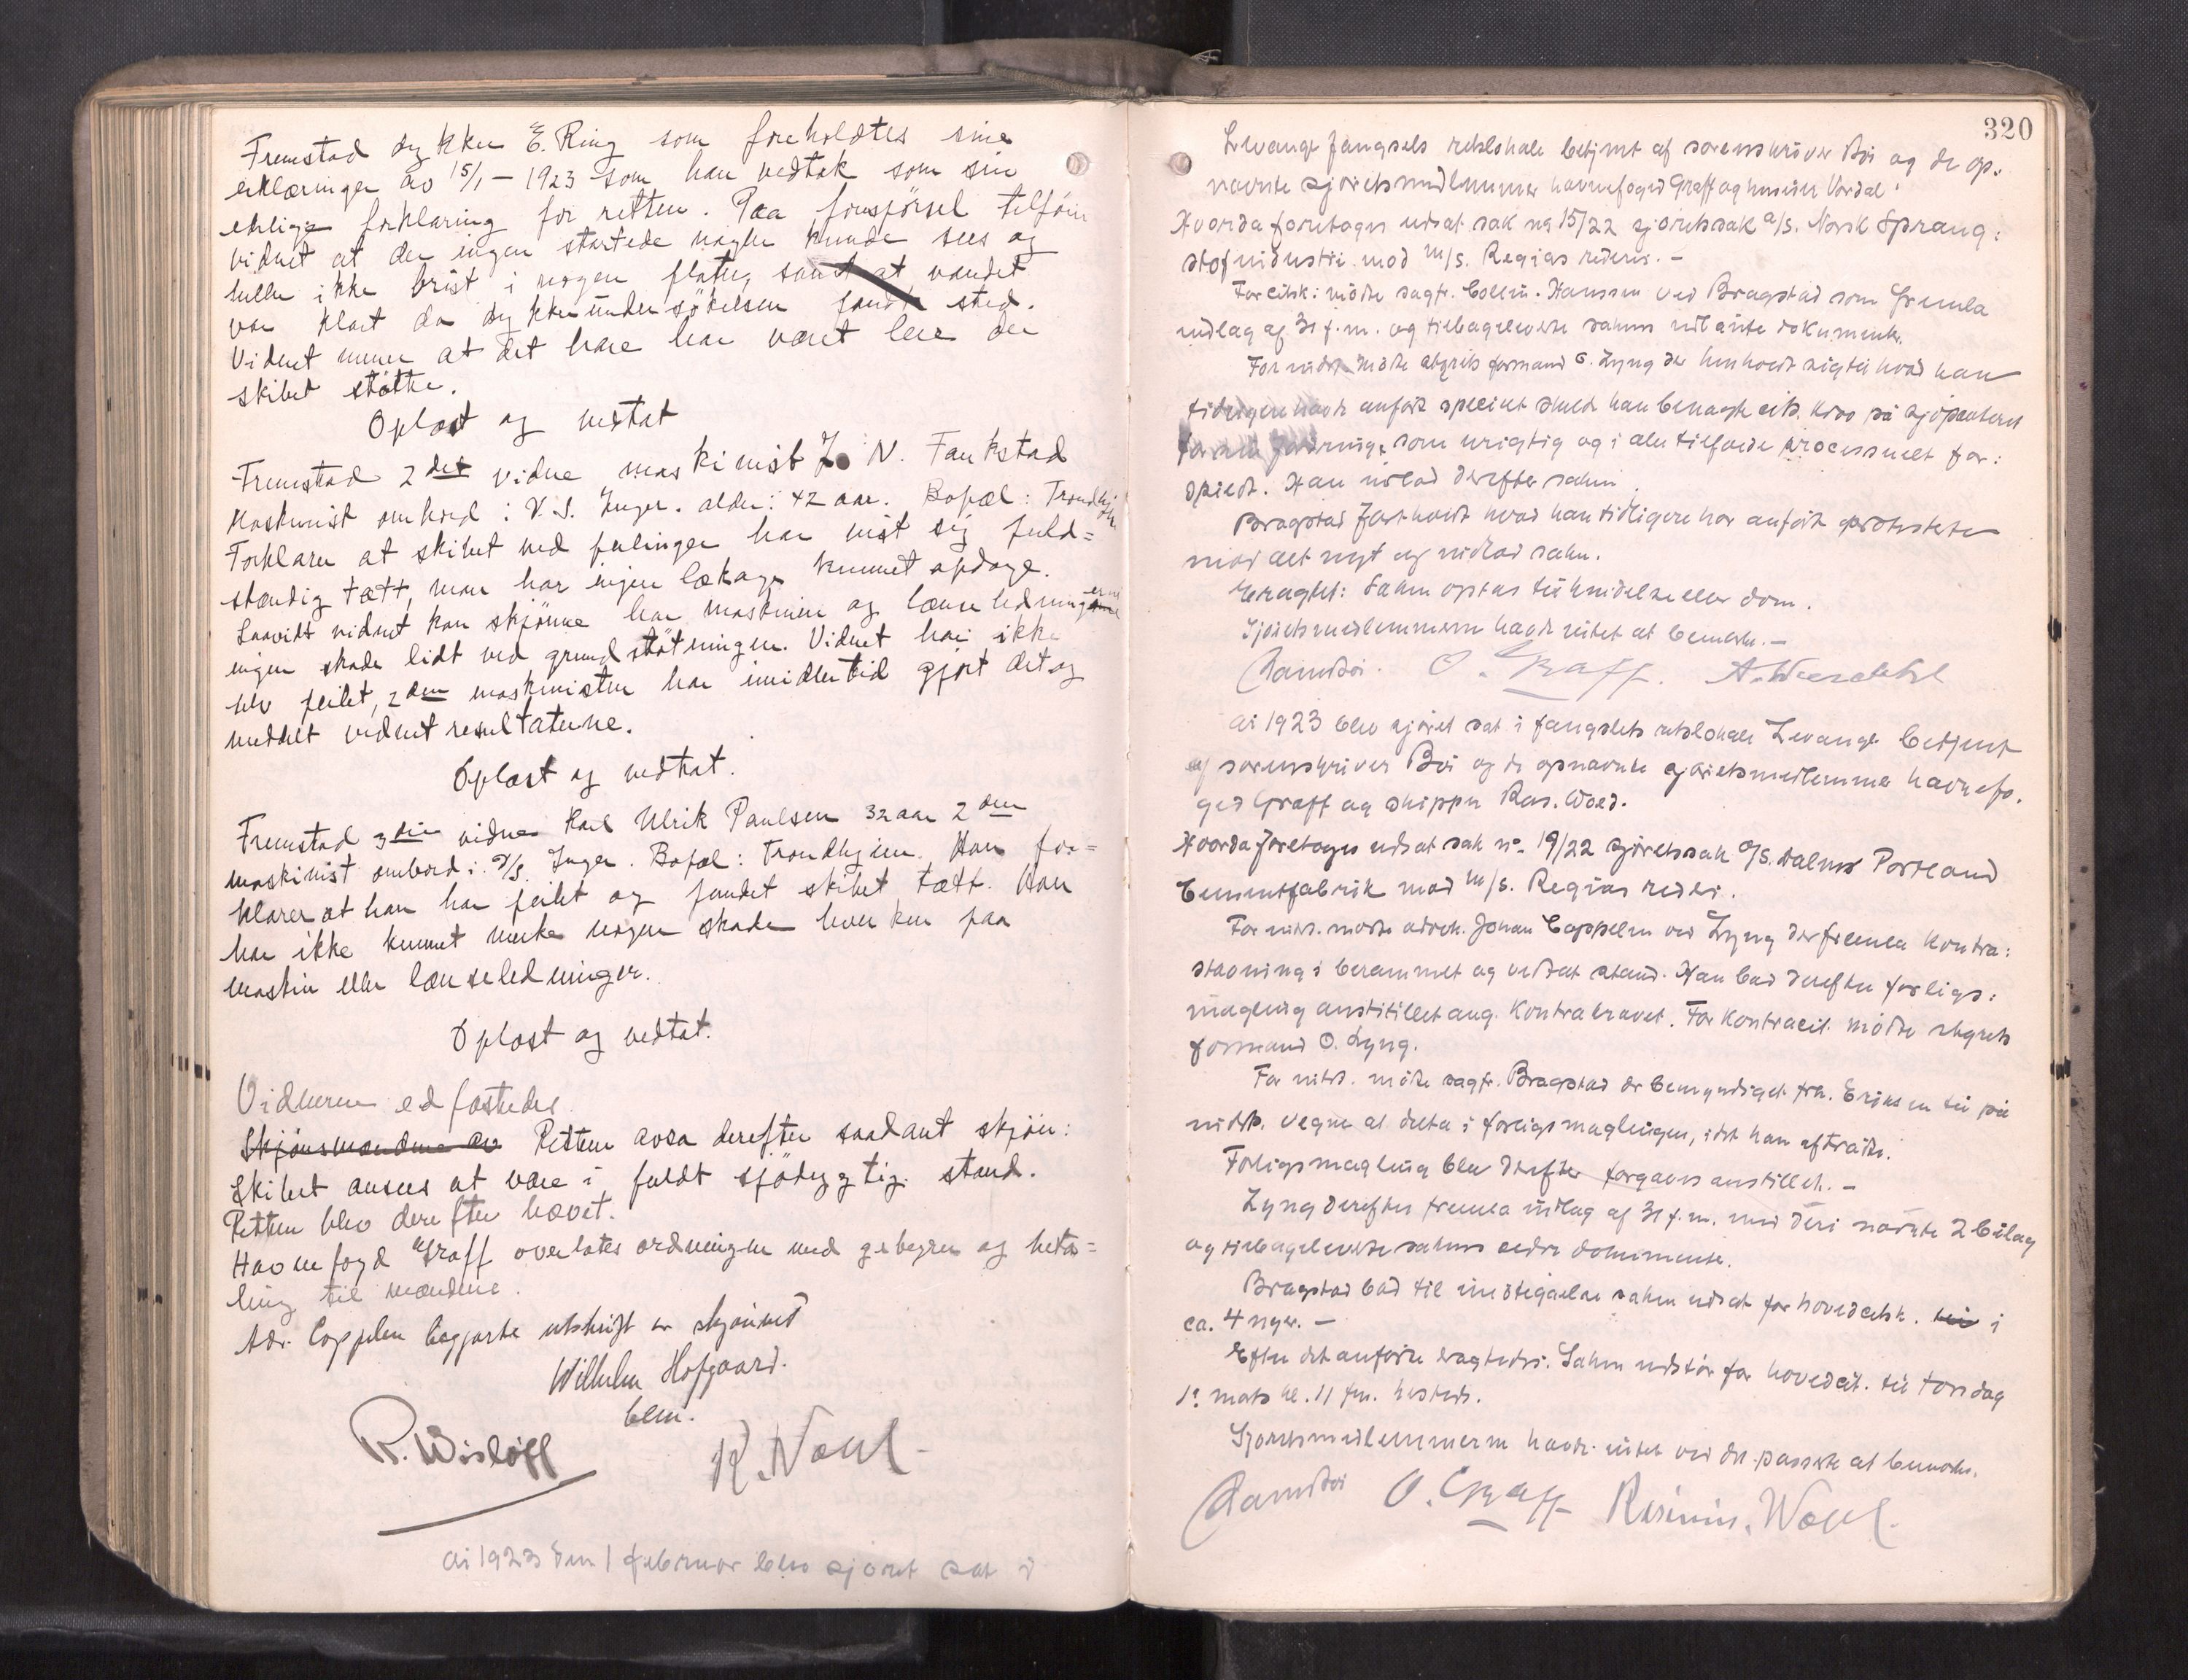 Fremstod dykker E. Ring som foreholdtes sine
erklæringer av 15/1 - 1923 som han vedtok som sin
edelige forklaring for retten. Paa forespørsel tilføier
vidnet at der ingen startede nagler kunde sees og
heller ikke brist i nogen plater, samt at vandet
var klart da dykkerundersökelsen fandt sted.
Vidnet mener at det bare har været lere der
skibet støtte.
Oplæst og vedtat
Fremstod 2det vidne maskinist J. N. Fankstad
Maskinist ombord i D.S. Inger. alder: 42 aar. Bopæl: Trondhjem
Forklarer at skibet ved peilinger har vist sig fuld=
stændig tætt, man har ingen lækage kunnet opdage.
Saavidt vidnet kan skjønne har maskinen og lænseledningerne
ingen skade lidt ved grundstøtningen. Vidnet har ikke
selv peilet, 2den maskinisten har imidlertid gjort det og
meddelt vidnet resultaterne.
Oplæst og vedtat.
Fremstod 3die vidne Karl Ulrik Paulsen 32 aar 2den
maskinist ombord i D/S. Inger. Bopæl: Trondhjem. Han for=
klarer at han har peilet og fundet skibet tætt. Han
har ikke kunnet merke nogen skade hverken paa
maskin eller lænseledninger.
Oplæst og vedtat.
Vidnerne edfæstedes
Skjønsmændene av Retten avga derefter saadant skjøn:
Skibet ansees at være i fuldt sjödygtig stand.
Retten blev derefter hævet.
Havnefogd Graff overlates ordningen med gebyrer og beta=
ling til mændene.
Adv. Cappelen begjærte utskrift av skjønnet
Wilhelm Hofgaard.
bem.
R. Wisløff K. Wohl
År 1923 den 1 februar blev sjøret sat i
320
Levanger fængsels retslokale betjent af sorenskriver Boi og de op-
nævnte sjøretsmedlemmer havnefoged Graff og
Hvorda foretoges udsat sak no 15/22 sjøretssak A/S. Norsk Spræng:
stofindustri mod M/S. Regias rederi. -
For citsk: mødte sagf. Collin-Hanssen ved Bragstad som fremla
indlæg af 31 f.m. og tilbagelevere sakens utlånte dokumenter.
For indst. mødte skyrets formand O. Lyng der henholdt sig til hvad han
tidligere havde anført specielt
som urigtig og i alle tilfælde processuelt for:
spildt. Han indlod derefter saken.
Bragstad fastholdt hvad han tidligere har anført protesterte
mod alt nyt og indlod saken.
Eragtet: Saken optas til kjendelse eller dom.
Sjøretsmedlemmerne havde intet at bemerke. -
O. Graff.
År 1923 blev sjøret sat i fængslets retslokale Levanger betjent
af sorenskriver Boi og de opnævnte sjøretsmedlemmer havnefo-
ged Graff og skipper Ras. Woed.
Hvorda foretoges udsat sak no. 19/22 sjøretssak A/S. Dalens Portland
Cementfabrik mod M/S. Regias rederi.
For indst. mødte advok. Johan Cappelen ved Lyng der fremla kontra:
stevning i berammet og vedtat stand. Han bad derefter forligs:
mægling anstillet ang. kontrakravet. For kontracit. mødte skyrets
formand O. Lyng.
For indst. møtte sagf. Bragstad der bemyndiget frk. Eriksen til på
indst. vegne at delta i forligsmæglingen, idet han aftrådte.
Forligsmægling blev derefter forgjæves anstillet. -
Lyng derefter fremla indlæg af 31 f.m. med deri nævnte 2 bilag
og tilbageleverte sakens ældre dokumenter.
Bragstad bad til imøtegåelse saken udsat for hovedcitsk. til i
ca. 4 uger. -
Efter det anførte eragtedes: Saken udstår for hovedcit. til torsdag
1. mars kl. 11 fm. hersteds.
Sjøretsmedlemmerne havde intet ved det passerte at bemerke.
O. Graff Rasmus. Woed.